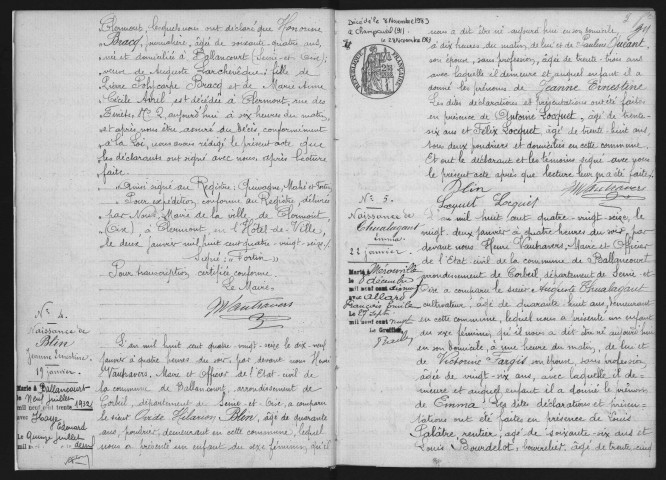 Clermont, lesquels nous ont déclaré que Honorine
Bracq, journalière, âgée de soixante quatre ans,
née et domiciliée à Ballancourt (Seine-et-Oise);
veuve de Auguste Larchevêque; fille de
Pierre Polycarpe Bracq et de Marie Anne
Cécile Avril est décédée à Clermont, rue des
Finets, N° 2, aujourd'hui à six heures du matin,
et après nous être assuré du décès, conformément
à la Loi, nous avons rédigé le présent acte que
les déclarants ont signé avec nous, après lecture
faite.
Ainsi signé au Registre:
Pour expédition, conforme au Registre, délivrée
par Nous, Maire de la ville de Clermont,
(Oise), à Clermont, en l'Hôtel-de-Ville,
le deux janvier mil huit cent quatre-vingt-seize.
Signé: "Fortin"
Pour transcription certifiée conforme.
Le Maire,
MVautravers
N° 4.
Naissance de
Blin
Jeanne Ernestine.
19 janvier.
Marié à Ballancourt
le Neuf juillet
mil neuf cent trente 1932
avec
Edouard
Le Quinze juillet
mil neuf cent
L'an mil huit cent quatre-vingt-seize, le dix-neuf
janvier à quatre heures du soir, par devant nous Henri
Vautravers, Maire et Officier de l'Etat civil de
la commune de Ballancourt, arrondissement de
Corbeil, département de Seine-et-Oise, a comparu
le sieur Ovide Hilarion Blin, âgé de quarante
ans, poudrier, demeurant en cette commune, lequel
nous a présenté un enfant du sexe féminin, qu'il
Décédée le 8 Novembre 1983
à Champcueil (91)
nous a dit être né aujourd'hui en son domicile,
à dix heures du matin, de lui et de Pauline Guéant,
son épouse, sans profession, âgée de trente-huit ans
avec laquelle il demeure et auquel enfant il a
donné les prénoms de Jeanne Ernestine.
Les dites déclarations et présentations ont été faites
en présence de Antoine Locquet, âgé de trente-
six ans et Félix Locquet, âgé de trente-huit ans,
tous deux poudriers et domiciliés en cette commune.
Et ont le déclarant et les témoins signé avec nous
le présent acte après que lecture leur en a été faite.
Blin
MVautravers
Locquet Locquet
N° 5.
Naissance de
Thualagant
Emma.
22 janvier.
Marié à Mérouville
le 6 décembre
mil neuf cent
avec Allard
François Emile
Le 17 Septe
mil neuf cent vingt
Le Greffier,
L'an mil huit cent quatre-vingt-seize, le
vingt-deux janvier à quatre heures du soir, par
devant nous Henri Vautravers, Maire et Officier
de l'Etat civil de la commune de Ballancourt
arrondissement de Corbeil, département de Seine-et-
Oise a comparu le sieur Auguste Thualagant
cultivateur, âgé de quarante-huit ans, demeurant
en cette commune, lequel nous a présenté un enfant
du sexe féminin, qu'il nous a dit être né aujourd'hui
en son domicile, à une heure du matin, de lui et
de Victorine Farges son épouse, sans profession,
âgée de vingt-six ans, avec laquelle il de-
meure et auquel enfant il a donné le prénom
de Emma. Les dites déclaration et présen-
tation ont été faites en présence de Louis
Palâtre, rentier, âgé de soixante-six ans et
Louis Bourdelot, bourrelier, âgé de trente-cinq